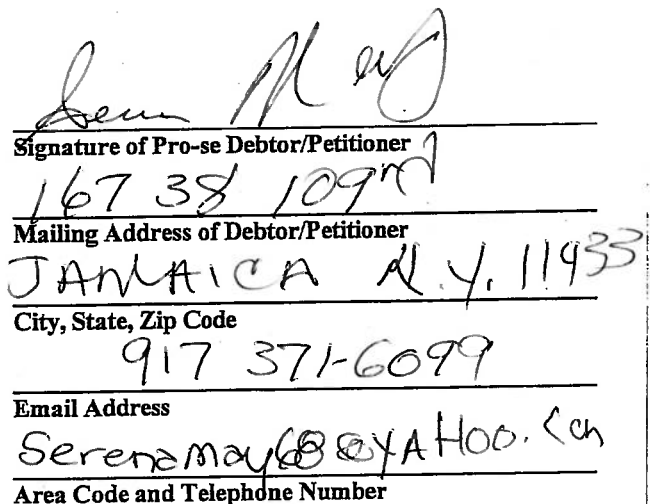 Signature of Pro-se Debtor/Petitioner
167 38 109rd
Mailing Address of Debtor/Petitioner
JAMAICA N.Y. 11433
City, State, Zip Code
917 371-6099
Email Address
serenamay68@YAHOO.com
Area Code and Telephone Number